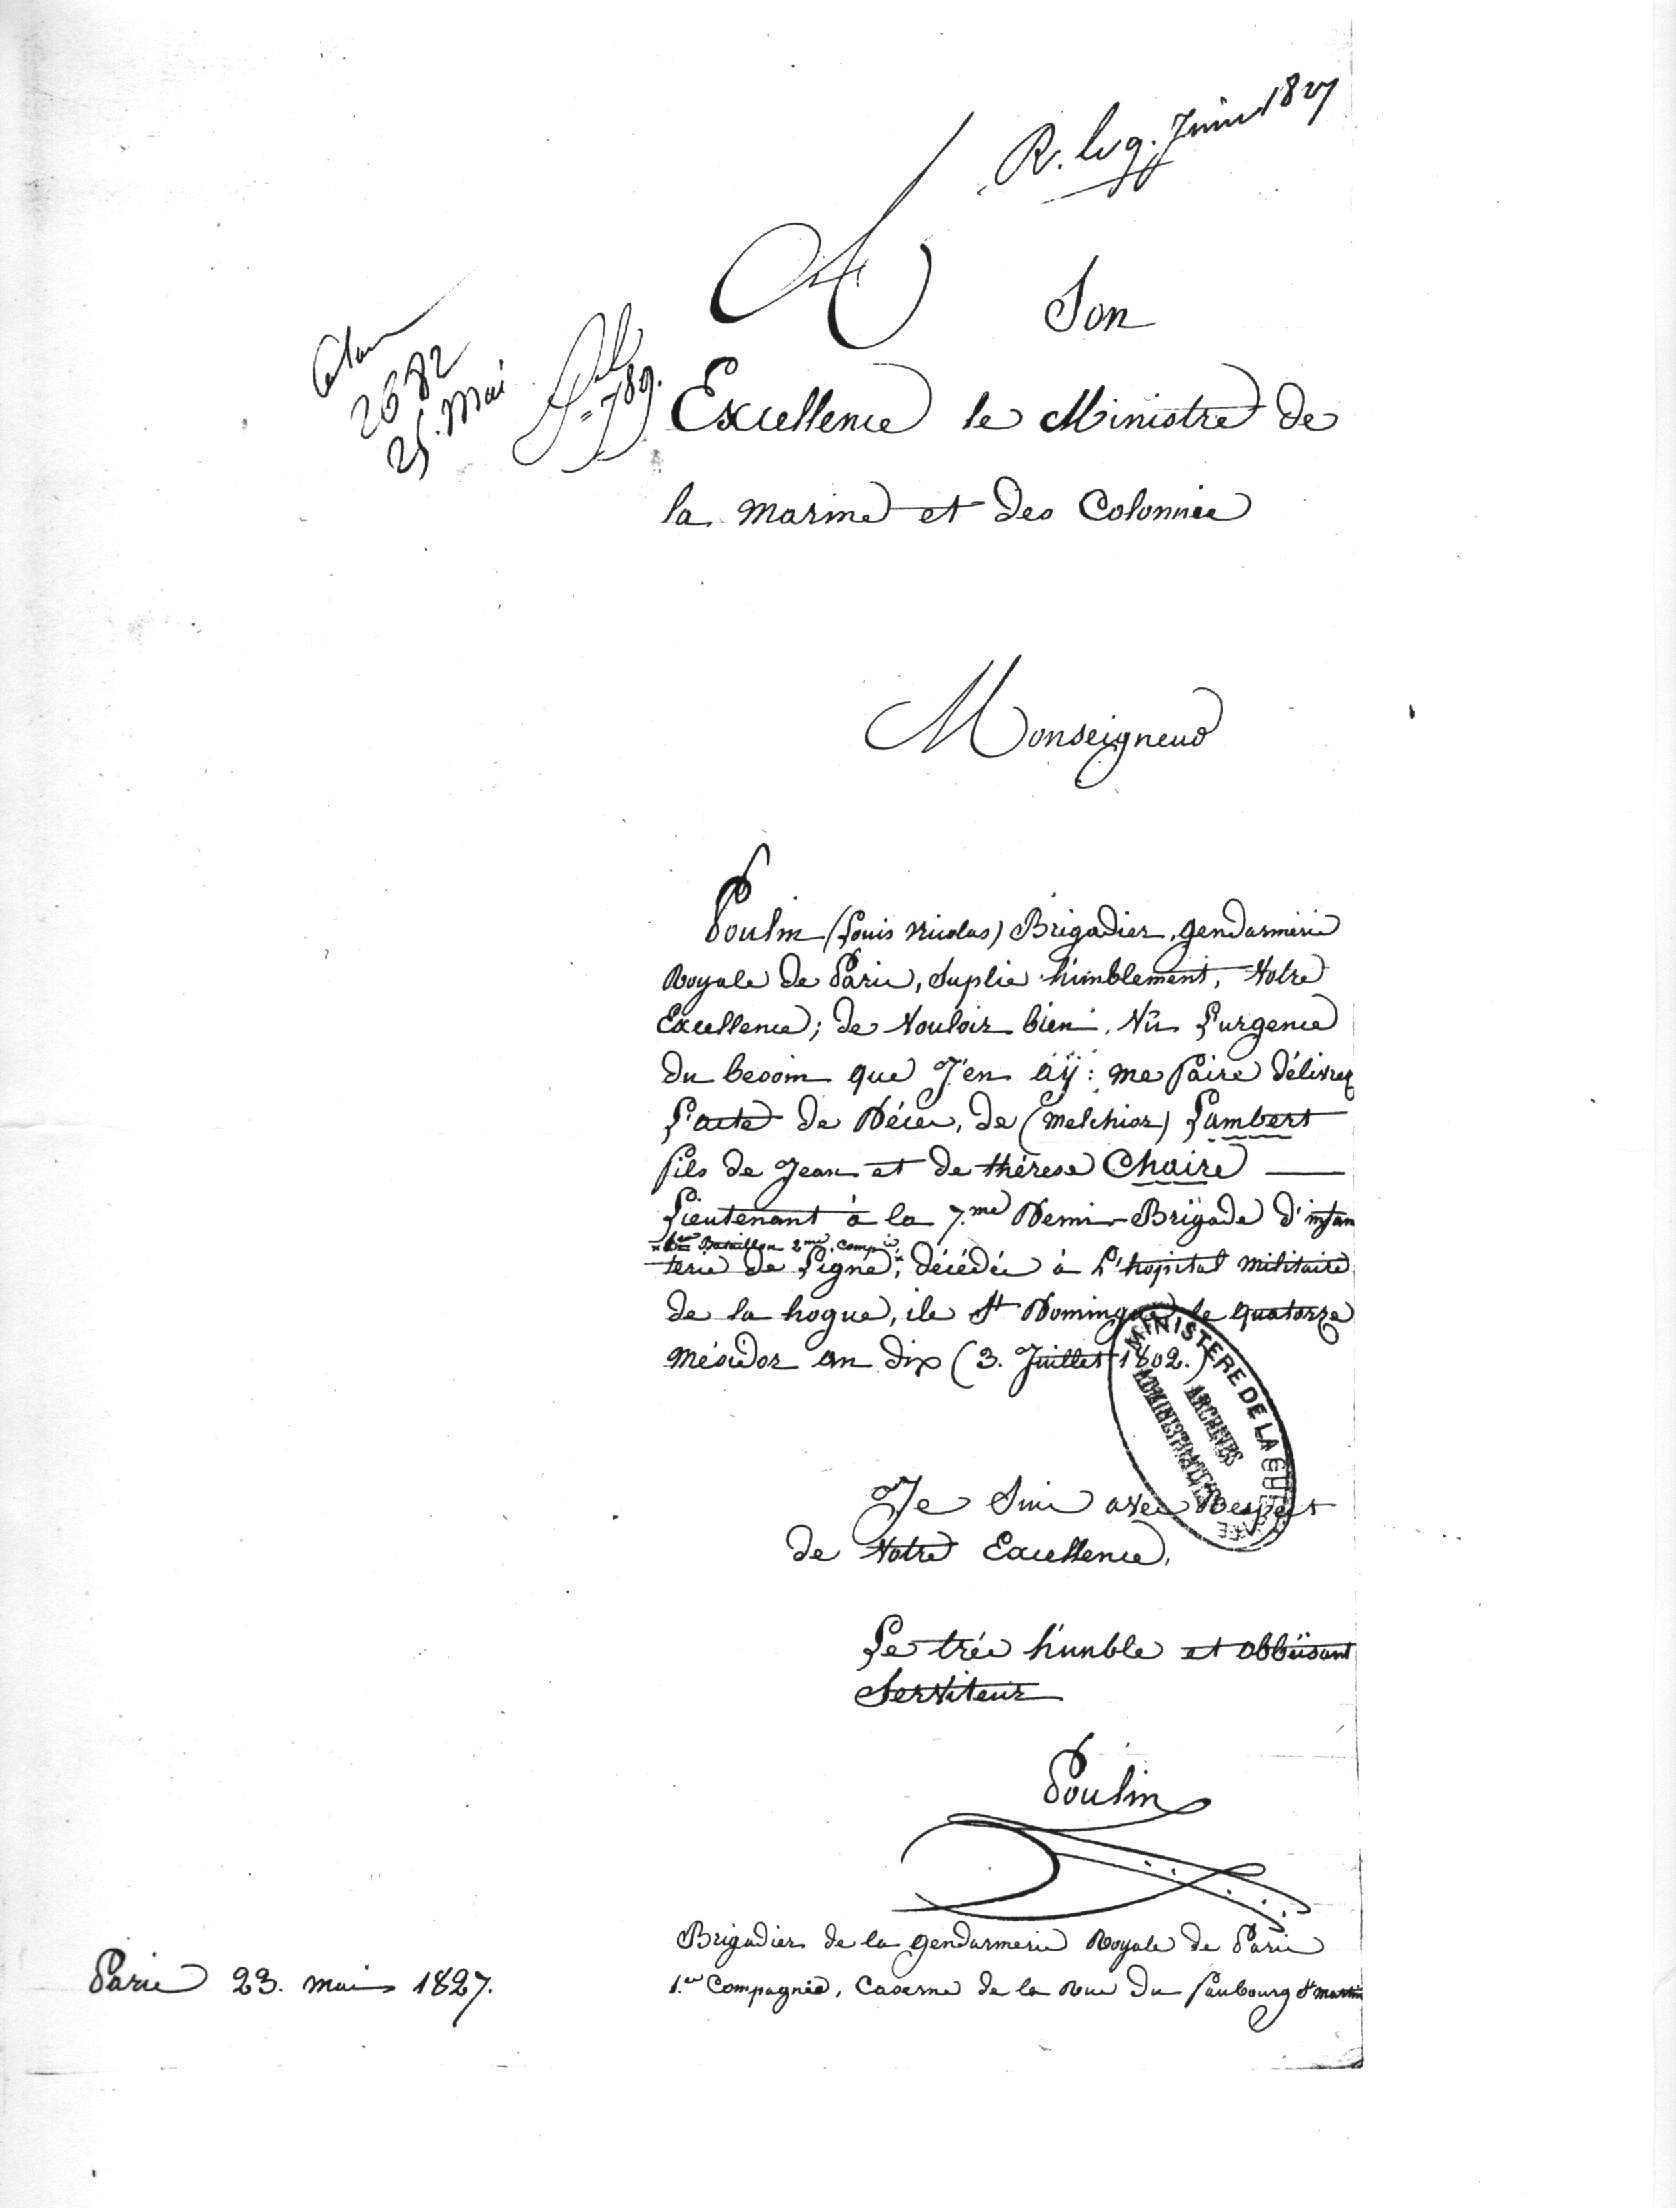 R. le 9. Juin 1827
2682
25. Mai
789.
A Son
Excellence le Ministre de
la marine et des Colonnies
Monseigneur
Poulin (Louis Nicolas) Brigadier, gendarmerie
Royale de Paris, suplie humblement, Votre
Excellence; de Vouloir bien, Vû L'urgence
du besoin que J'en aÿ: me faire délivrer
L'acte de Décès, de (Melchior) Lambert
fils de Jean et de thérese Chaire
Lieutenant à la 7.me Demi-Brigade d'infan
1er Bataillon 2me Compie
terie de Ligne, décédée à L'hopital militaire
de la hogue, ile St Domingue le quatorze
Mésidor an dix (3. Juillet 1802.)
MINISTERE DE LA GUERRE
ARCHIVES
ADMINISTRATIVES
Je Suis avec Respect
de Votre Excellence,
Le trés humble et obbéïsant
Serviteur
Poulin
Brigadier de la gendarmerie Royale de Paris
1.ere Compagnie, Caserne de la Rue du faubourg St martin
Paris 23. mai 1827.